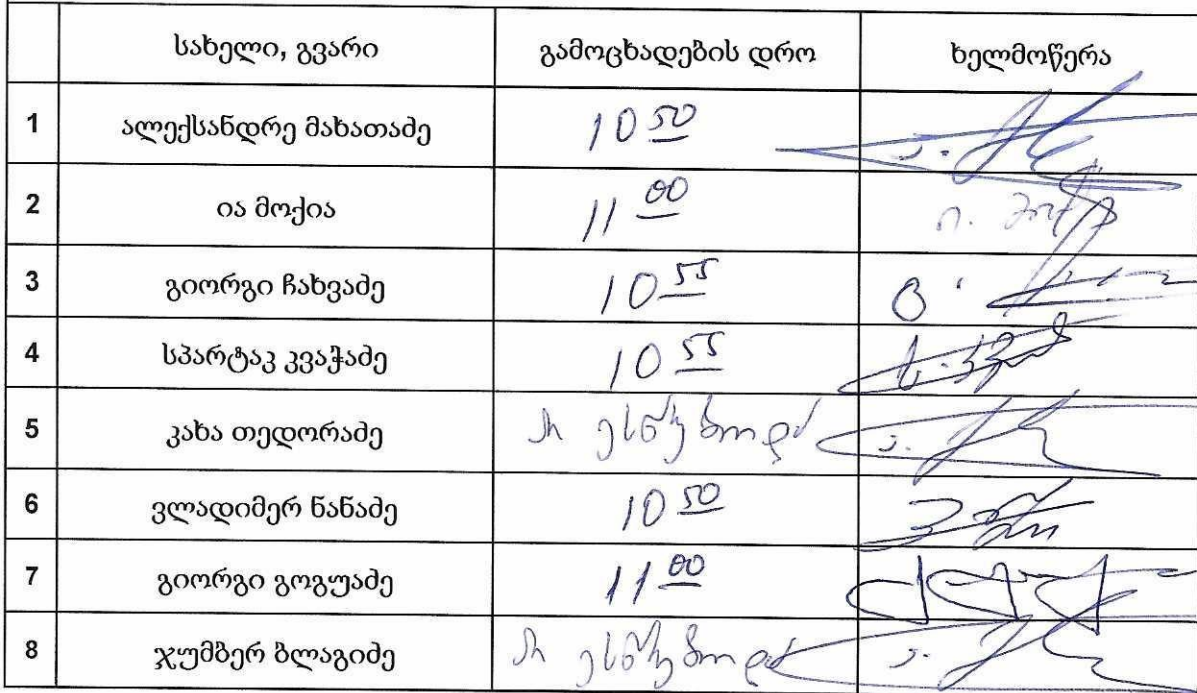 სახელი, გვარი გამოცხადების დრო ხელმოწერა
1 ალექსანდრე მახათაძე 10 50
2 ია მოქია 11 00
3 გიორგი ჩახვაძე 10 55
4 სპარტაკ კვაჭაძე 10 55
5 კახა თედორაძე არ ესწრებოდა
6 ვლადიმერ ნანაძე 10 50
7 გიორგი გოგუაძე 11 00
8 ჯუმბერ ბლაგიძე არ ესწრებოდა